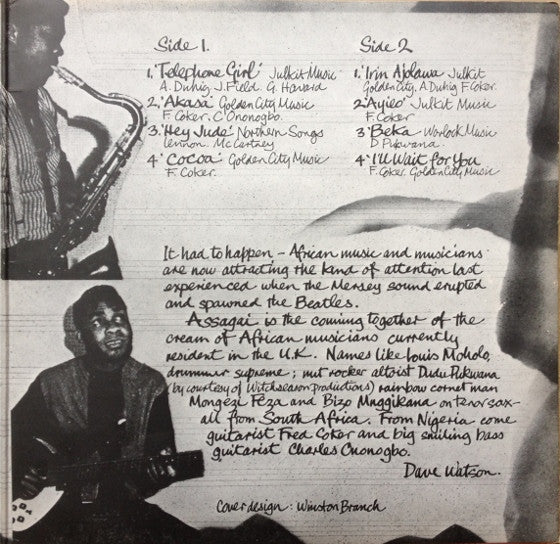 Side 1.
1, 'Telephone Girl' Julkit Music
A. Duhig J. Field. G. Havard
2, 'Akasa' Golden City Music
F. Coker. C. Ononogbo.
3 'Hey Jude' Northern Songs
Lennon. McCartney
4 'Cocoa' Golden City Music
F. Coker.
Side 2
1, 'Irin Ajolawa' Julkit
Golden City, A Duhig F. Coker.
2, 'Ayieo' Julkit Music
F. Coker
3 'Beka' Warlock Music
D Pukwana.
4 'I'll Wait for You
F. Coker. Golden City Music
It had to happen - African music and musicians
are now attracting the kind of attention last
experienced when the Mersey sound erupted
and spawned the Beatles.
Assagai is the coming together of the
cream of African musicians currently
resident in the U.K. Names like Louis Moholo,
drummer supreme; nut rocker altoist Dudu Pukwana
(by courtesy of Witchseason Productions) rainbow cornet man
Mongezi Feza and Bizo Mnggikana on tenor sax -
all from South Africa. From Nigeria come
guitarist Fred Coker and big smiling bass
guitarist Charles Ononogbo.
Dave Watson.
Cover design: Winston Branch